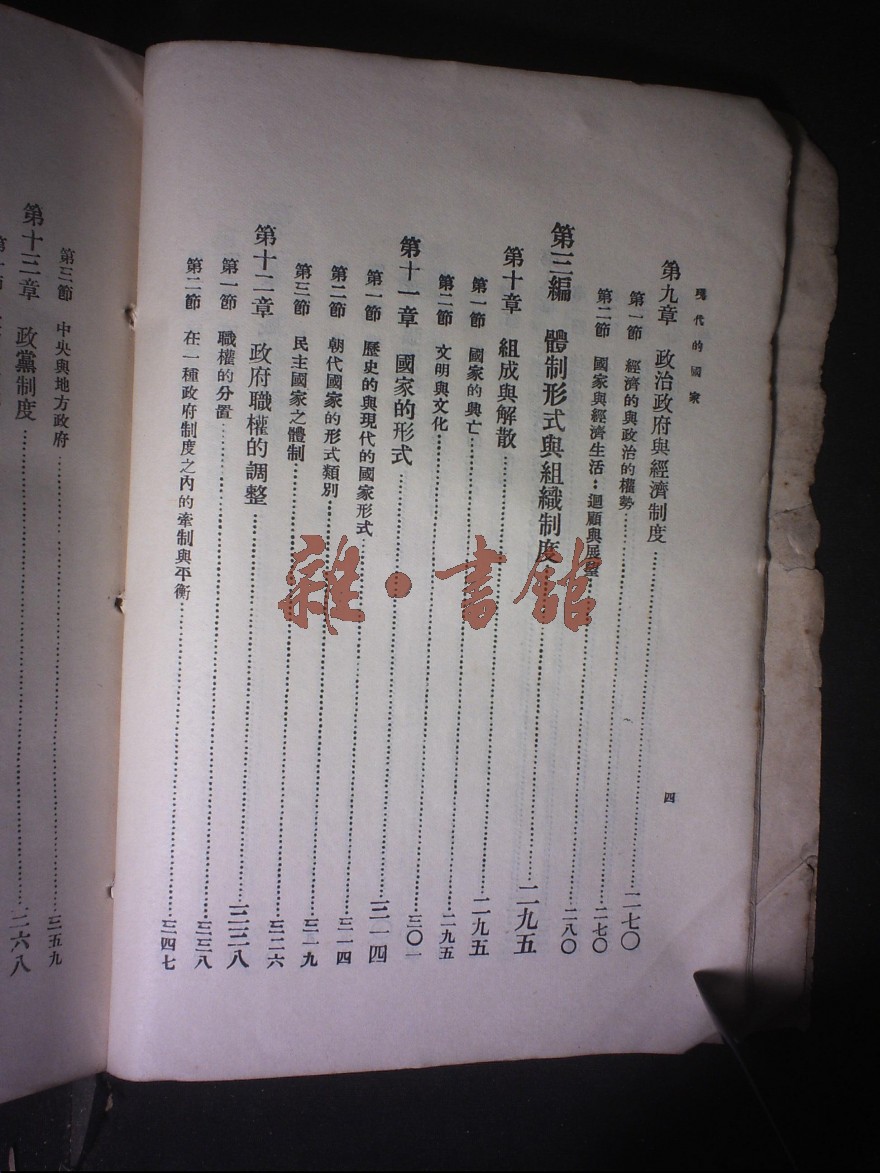 現代的國家
四
第九章 政治政府與經濟制度……二七〇
第一節 經濟的與政治的權勢……二七〇
第二節 國家與經濟生活：迴顧與展望……二八〇
第三編 體制形式與組織制度……二九五
第十章 組成與解散……二九五
第一節 國家的興亡……二九五
第二節 文明與文化……三〇一
第十一章 國家的形式……三一四
第一節 歷史的與現代的國家形式……三一四
第二節 朝代國家的形式類別……三一九
第三節 民主國家之體制……三二六
第十二章 政府職權的調整……三三八
第一節 職權的分置……三三八
第二節 在一種政府制度之內的牽制與平衡……三四七
第三節 中央與地方政府……三五九
第十三章 政黨制度……三六八
雜·書館